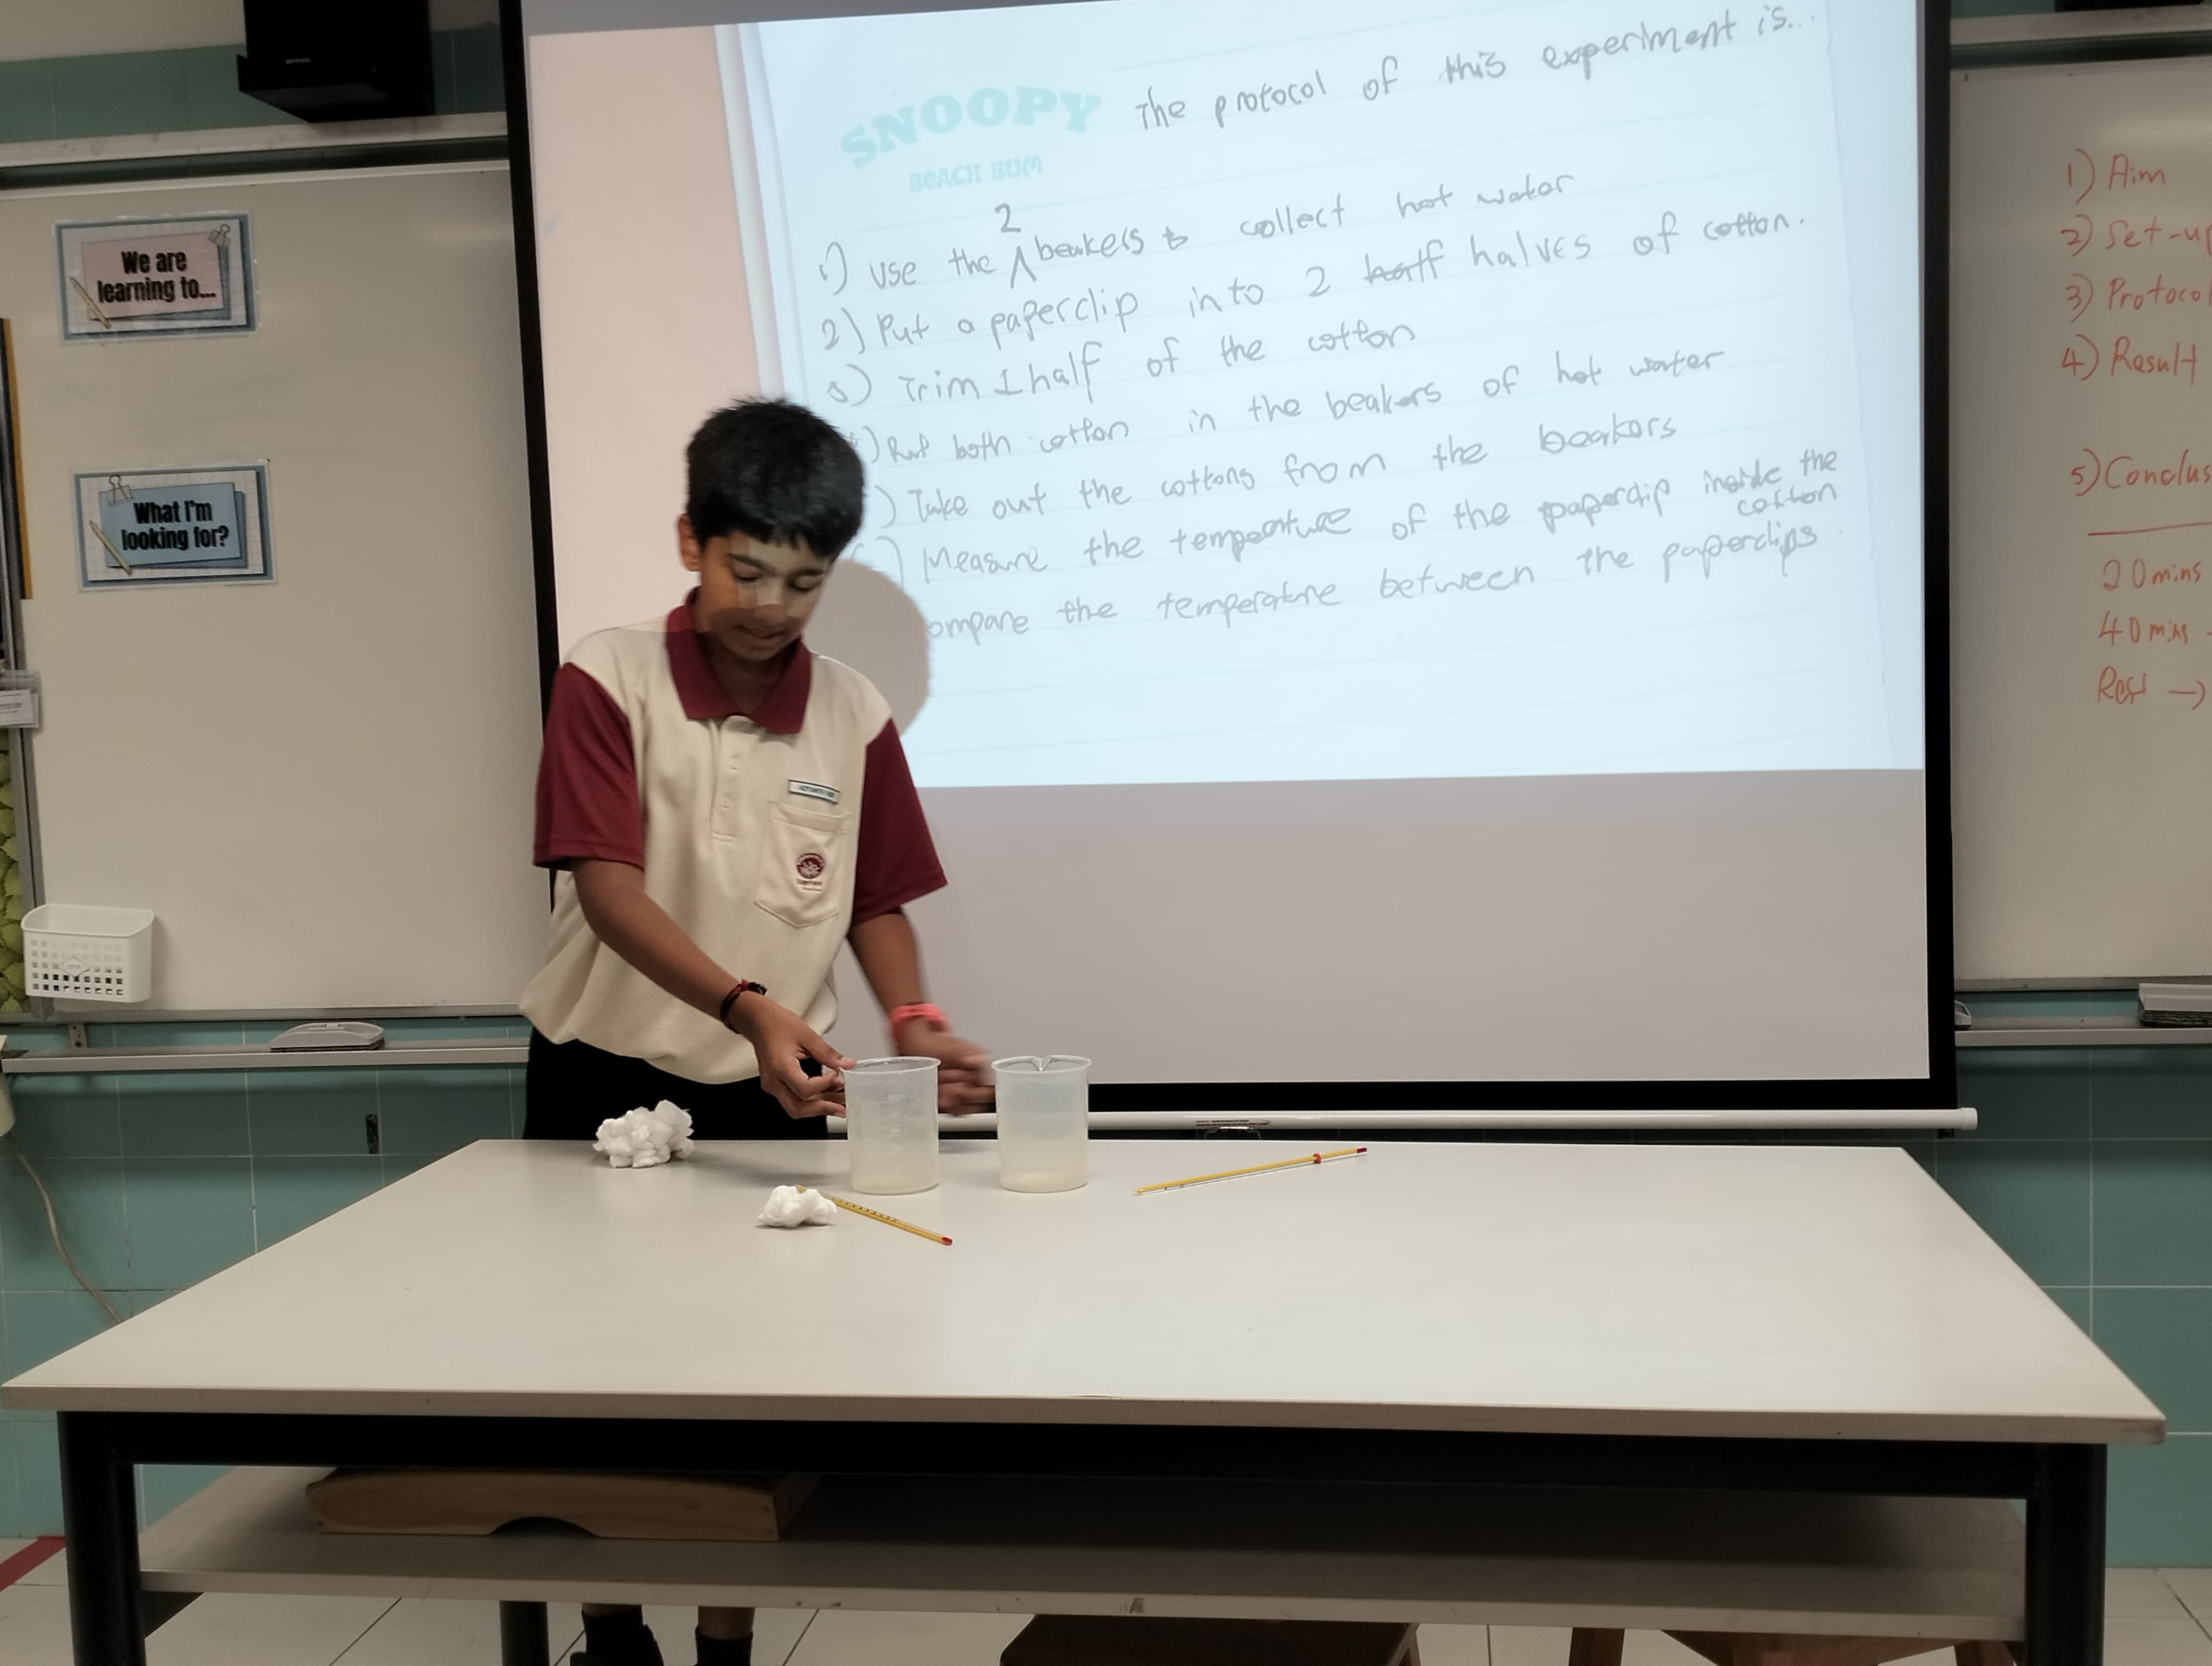 SNOOPY
BEACH BUM
The protocol of this experiment is...
1) Use the 2 beakers to collect hot water
2) Put a paperclip into 2 halff halves of cotton.
3) Trim 1 half of the cotton
) Put both cotton in the beakers of hot water
) Take out the cottons from the beakers
) Measure the temperature of the paperclip inside the cotton
ompare the temperature between the paperclips.
We are
learning to...
What I'm
looking for?
1) Aim
2) Set-up
3) Protocol
4) Result
5) Conclus
20 mins
40 mins -
Rest →